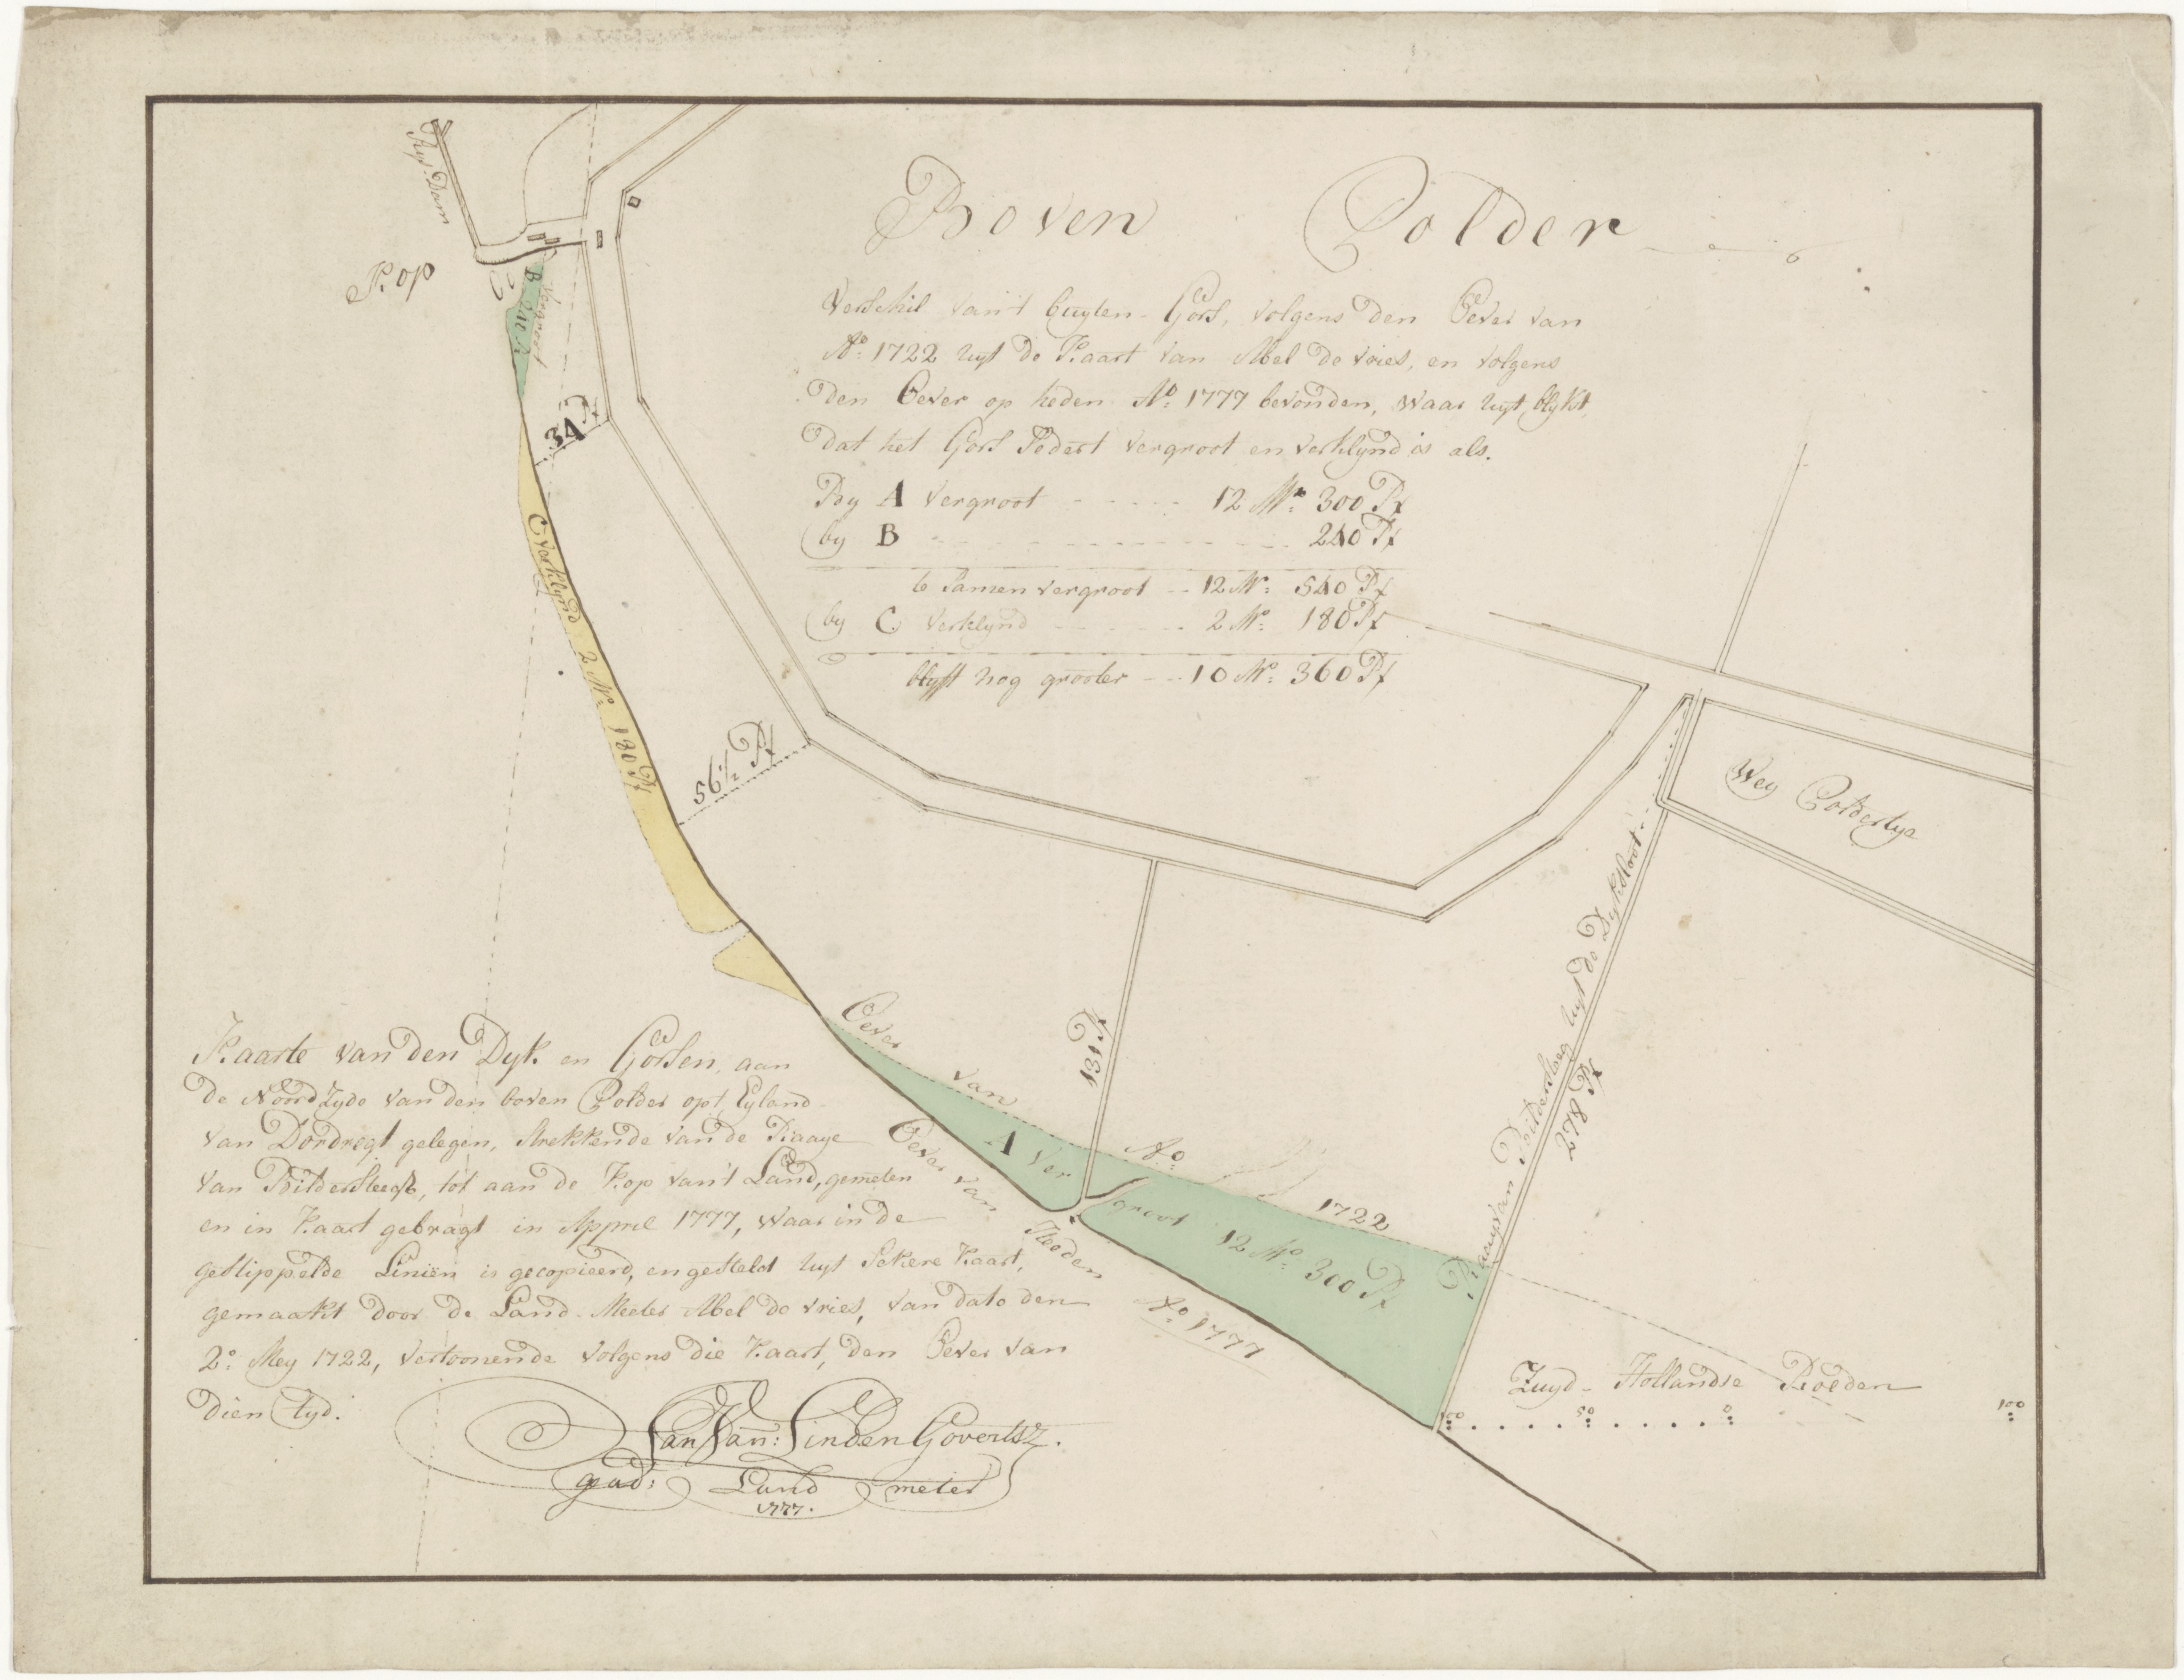 Boven Polder
Verschil van't buyten-Gors, volgens den Oever van
Aº: 1722 uyt de Kaart van Abel de Vries, en volgens
den Oever op heden Aº: 1777 bevonden, waar uyt, blykt,
dat het Gors Sedert vergroot en verklynd is als.
By A vergroot - - - - - 12 Mº: 300 Rt
by B - - - - - - - - - - 240 Rt
te Samen vergroot - - 12 Mº: 540 Rt
by C verklynd - - - - - 2 Mº: 180 Rt
blyft nog grooter - - - 10 Mº: 360 Rt
Rys-Dam
Kop
B 240 Rt
vergroot
34 Rt
C verklynd 2 Mº: 180 Rt
56½ Rt
131 Rt
Wey Poldertye
Raay van Bildersteeg uyt de Dyksloot
278 Rt
Oever van Aº 1722
A Vergroot 12 Mº 300 Rt
Oever van Heeden Aº 1777
Kaarte van den Dyk en Gorsen, aan
de Noord Zyde van den boven Polder op't Eyland
van Dordregt gelegen, Strekkende van de Raaye
van Bildersteegh, tot aan de Kop van't Land, gemeten
en in Kaart gebragt in Appril 1777, waar in de
gestippelde Liniën is gecopieerd, en gesteld uyt Sekere Kaart,
gemaakt door de Land-Meeter Abel de Vries, van dato den
2º: Mey 1722, vertoonende volgens die Kaart, den Oever van
dien tyd.
Jan Van: Linden Govertsz.
gead: Land meter
1777.
Zuyd-Hollandse Roeden
100 50 0 100